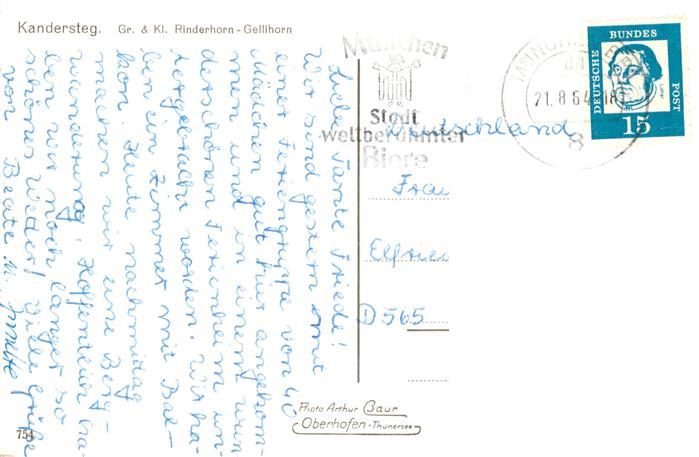 Kandersteg. Gr. & Kl. Rinderhorn - Gellihorn
Liebe Tante Friede!
Wir sind gestern mit
einer Feriengruppe von 40
Mädchen gut hier angekom-
men und in einem wun-
derschönen Ferienheim un-
tergebracht worden. Wir ha-
ben ein Zimmer mit Bal-
kon. Heute nachmittag
machen wir eine Berg-
wanderung. Hoffentlich ha-
ben wir noch länger so
schönes Wetter! Viele Grüße
von Beate u. Annette
München
Stadt
weltberühmter
Biere
21.8.64-18
8
DEUTSCHE BUNDES POST
15
Deutschland
Frau
D 565
Photo Arthur Baur
Oberhofen-Thunersee
754